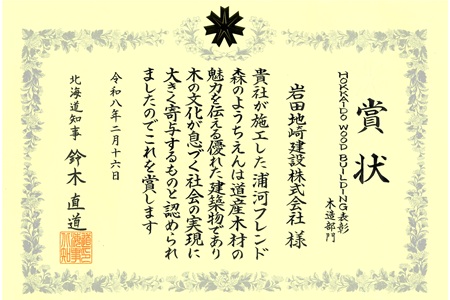 賞状
HOKKAIDO WOOD BUILDING表彰
木造部門
岩田地崎建設株式会社 様
貴社が施工した浦河フレンド
森のようちえんは道産木材の
魅力を伝える優れた建築物であり
木の文化が息づく社会の実現に
大きく寄与するものと認められ
ましたのでこれを賞します
令和八年二月十六日
北海道知事 鈴木直道